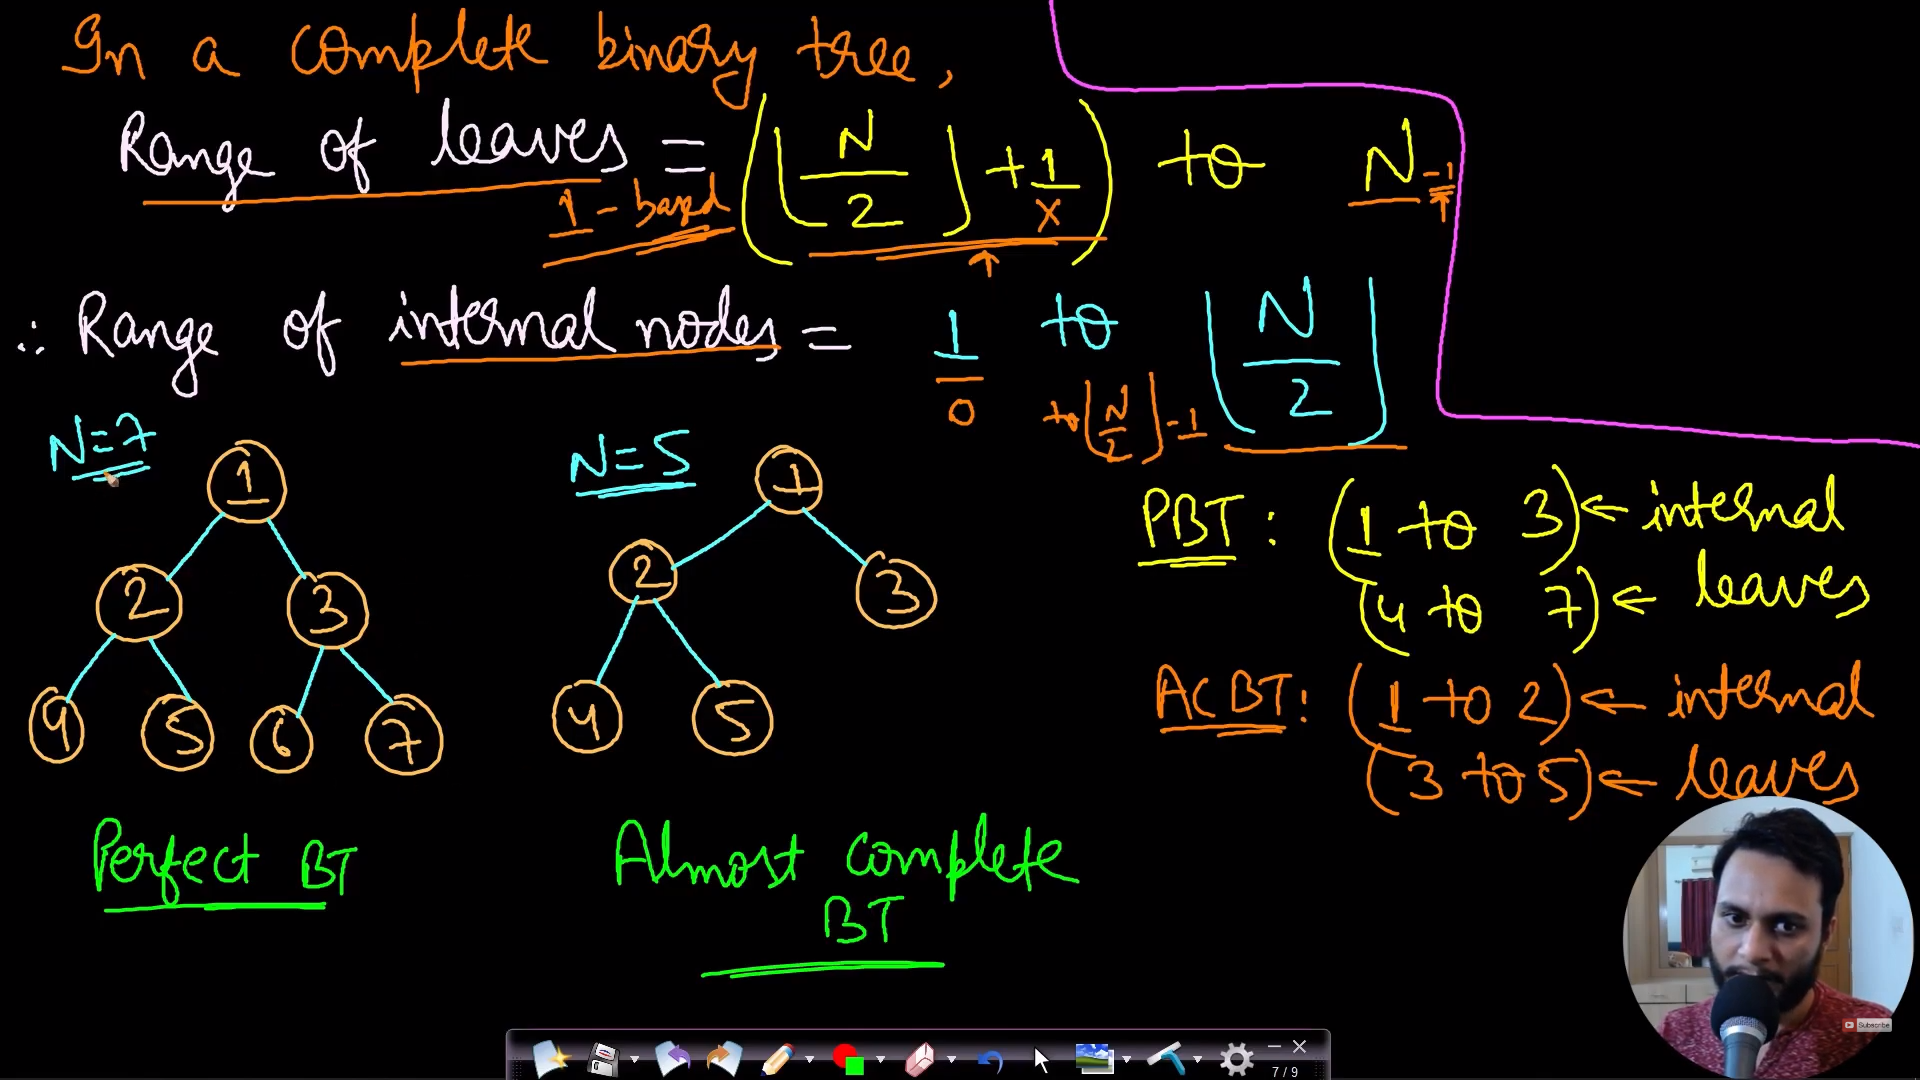 In a complete binary tree,
Range of leaves = (⌊N/2⌋ + 1) to N -1
1 - based
x
∴ Range of internal nodes = 1 to ⌊N/2⌋
0 to ⌊N/2⌋ -1
N=7
N=5
1
2 3
4 5 6 7
1
2 3
4 5
Perfect BT
Almost complete
BT
PBT : (1 to 3) ← internal
(4 to 7) ← leaves
ACBT : (1 to 2) ← internal
(3 to 5) ← leaves
Subscribe
7 / 9